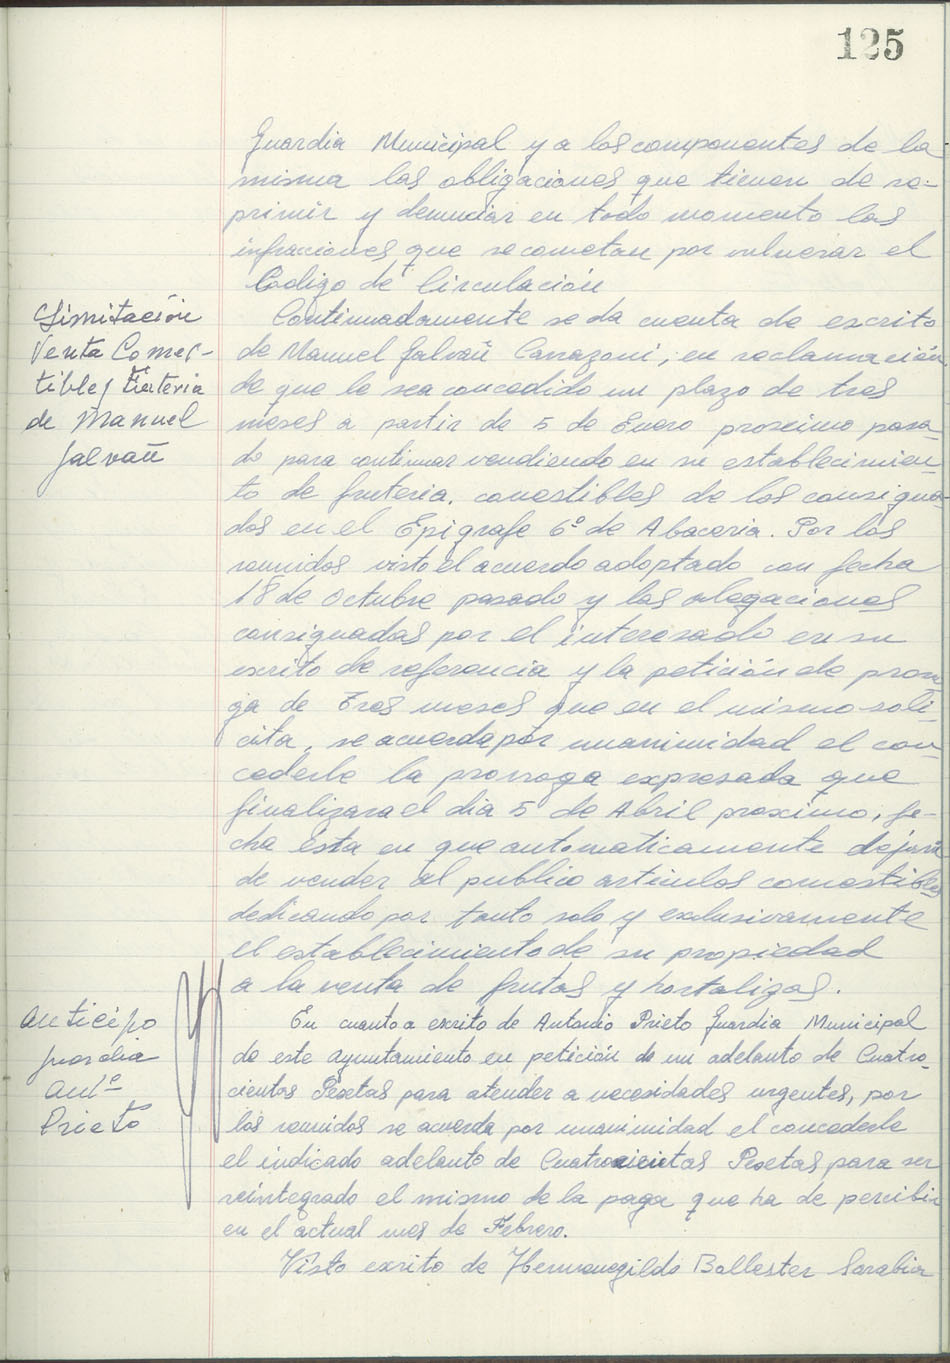 125
Guardia Municipal y a los componentes de la
misma las obligaciones que tienen de re-
primir y denunciar en todo momento las
infracciones que se cometan por vulnerar el
Codigo de Circulación
Limitación
Venta Comes-
tibles fruteria
de Manuel
Galvañ
Continuadamente se da cuenta de escrito
de Manuel Galvañ Carrazoni, en reclamación
de que le sea concedido un plazo de tres
meses a partir de 5 de Enero proximo pasa-
do para continuar vendiendo en su establecimien-
to de fruteria, comestibles de los consigna-
dos en el Epigrafe 6º de Abaceria. Por los
reunidos visto el acuerdo adoptado con fecha
18 de Octubre pasado y las alegaciones
consignadas por el interesado en su
escrito de referencia y la petición de prorro
ga de tres meses que en el mismo soli-
cita, se acuerda por unanimidad el con-
cederle la prorroga expresada que
finalizara el dia 5 de Abril proximo, fe-
cha ésta en que automaticamente dejará
de vender al publico articulos comestibles
dedicando por tanto solo y exclusivamente
el establecimiento de su propiedad
a la venta de frutas y hortalizas.
Anticipo
guardia
Antº
Prieto
En cuanto a escrito de Antonio Prieto Guardia Municipal
de este Ayuntamiento en petición de un adelanto de Cuatro-
cientas Pesetas para atender a necesidades urgentes, por
los reunidos se acuerda por unanimidad el concederle
el indicado adelanto de Cuatrocientas Pesetas para ser
reintegrado el mismo de la paga que ha de percibir
en el actual mes de Febrero.
Visto escrito de Hermenegildo Ballester Sarabia